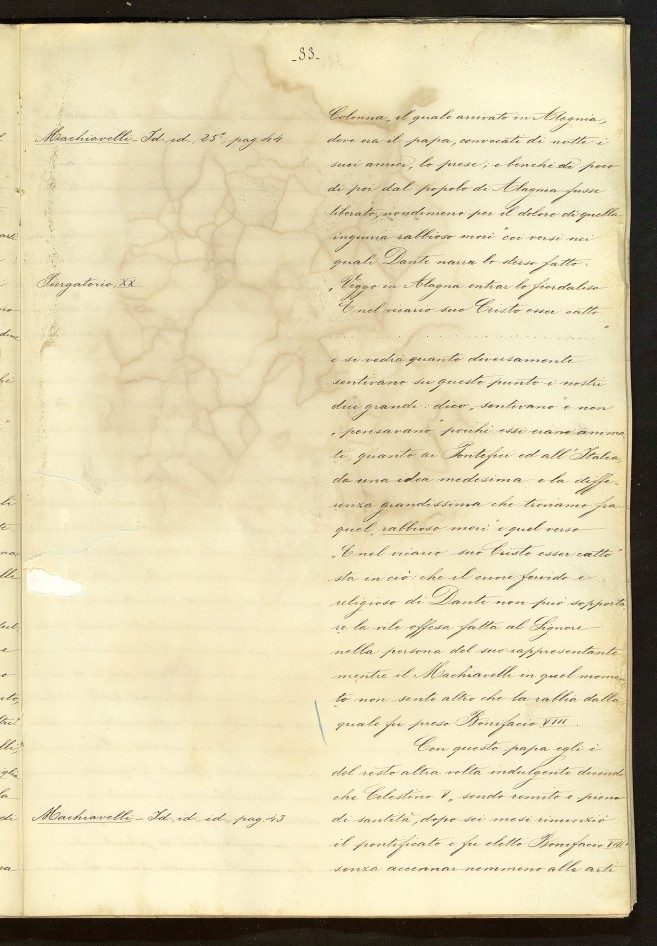 -33-
Colonna, il quale arrivato in Alagnia,
Machiavelli - Id, id, 25°, pag. 44
dove era il papa, convocati di notte i
suoi amici, lo prese; e benchè di poco
di poi dal popolo di Alagnia fusse
liberato, nondimeno per il dolore di quella
ingiuria rabbioso morì" coi versi nei
quali Dante narra lo stesso fatto.
Purgatorio, XX.
"Veggo in Alagna entrar lo fiordaliso
E nel vicario suo Cristo esser catto
"
e si vedrà quanto diversamente
sentivano su questo punto i nostri
due grandi: dico "sentivano" e non
"pensavano" poichè essi erano anima
ti, quanto ai Pontefici ed all'Italia,
da una idea medesima e la diffe-
renza grandissima che troviamo fra
quel "rabbioso morì" e quel verso
"E nel vicario suo Cristo esser catto"
sta in ciò: che il cuore fervido e
religioso di Dante non può sopporta
re la vile offesa fatta al Signore
nella persona del suo rappresentante
mentre il Machiavelli in quel momen
to non sente altro che la rabbia dalla
quale fu preso Bonifacio VIII.
Con questo papa egli è
del resto altra volta indulgente dicendo
che Celestino V, "sendo romito e pieno
Machiavelli - Id, id, id, pag. 43
di santità, dopo sei mesi rinunziò
il pontificato e fu eletto Bonifacio VIII"
senza accennar nemmeno alle arti